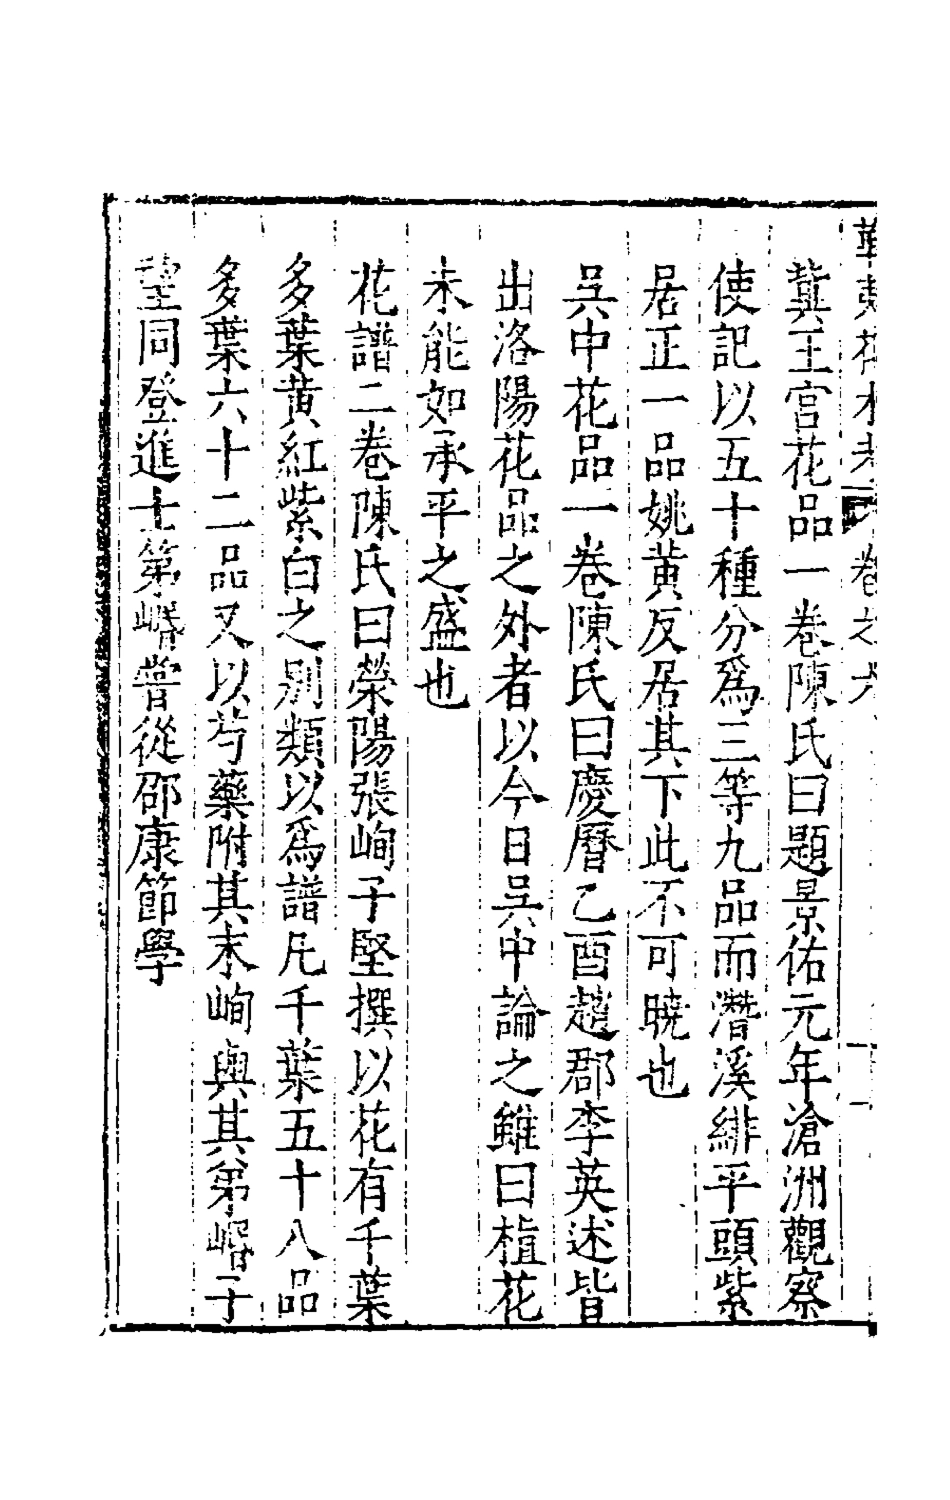 華夷花木考 卷之六
冀王宮花品一卷陳氏曰題景佑元年滄洲觀察
使記以五十種分爲三等九品而潛溪緋平頭紫
居正一品姚黃反居其下此不可曉也
吳中花品一卷陳氏曰慶曆乙酉趙郡李英述皆
出洛陽花品之外者以今日吳中論之雖曰植花
未能如承平之盛也
花譜二卷陳氏曰滎陽張峋子堅撰以花有千葉
多葉黃紅紫白之別類以爲譜凡千葉五十八品
多葉六十二品又以芍藥附其末峋與其弟㟭子
望同登進士第㟭嘗從邵康節學